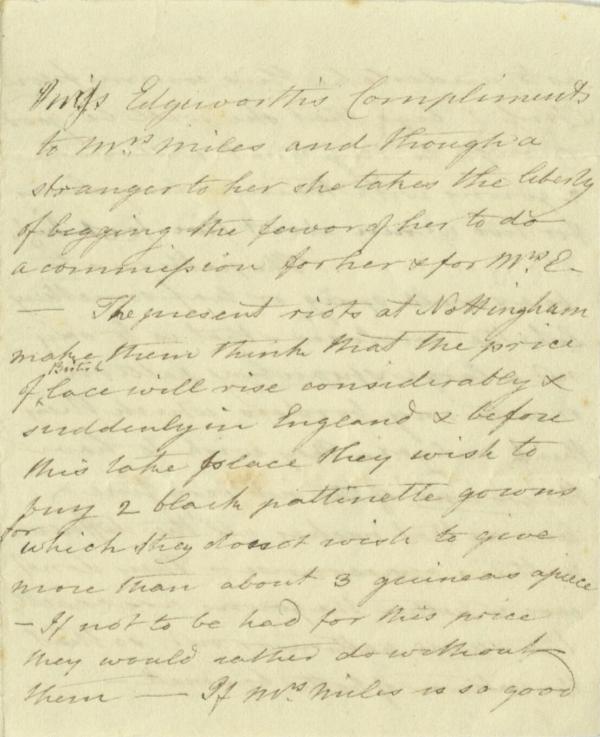 Miss Edgeworth's Compliments
to Mrs Miles and though a
stranger to her she takes the liberty
of begging the favor of her to do
a commission for her & for Mrs E.
— The present riots at Nottingham
make them think that the price
of British lace will rise considerably &
suddenly in England & before
this take place they wish to
buy 2 black pattinette gowns
for which they do not wish to give
more than about 3 guineas apiece
— If not to be had for this price
they would rather do without
them — If Mrs Miles is so good